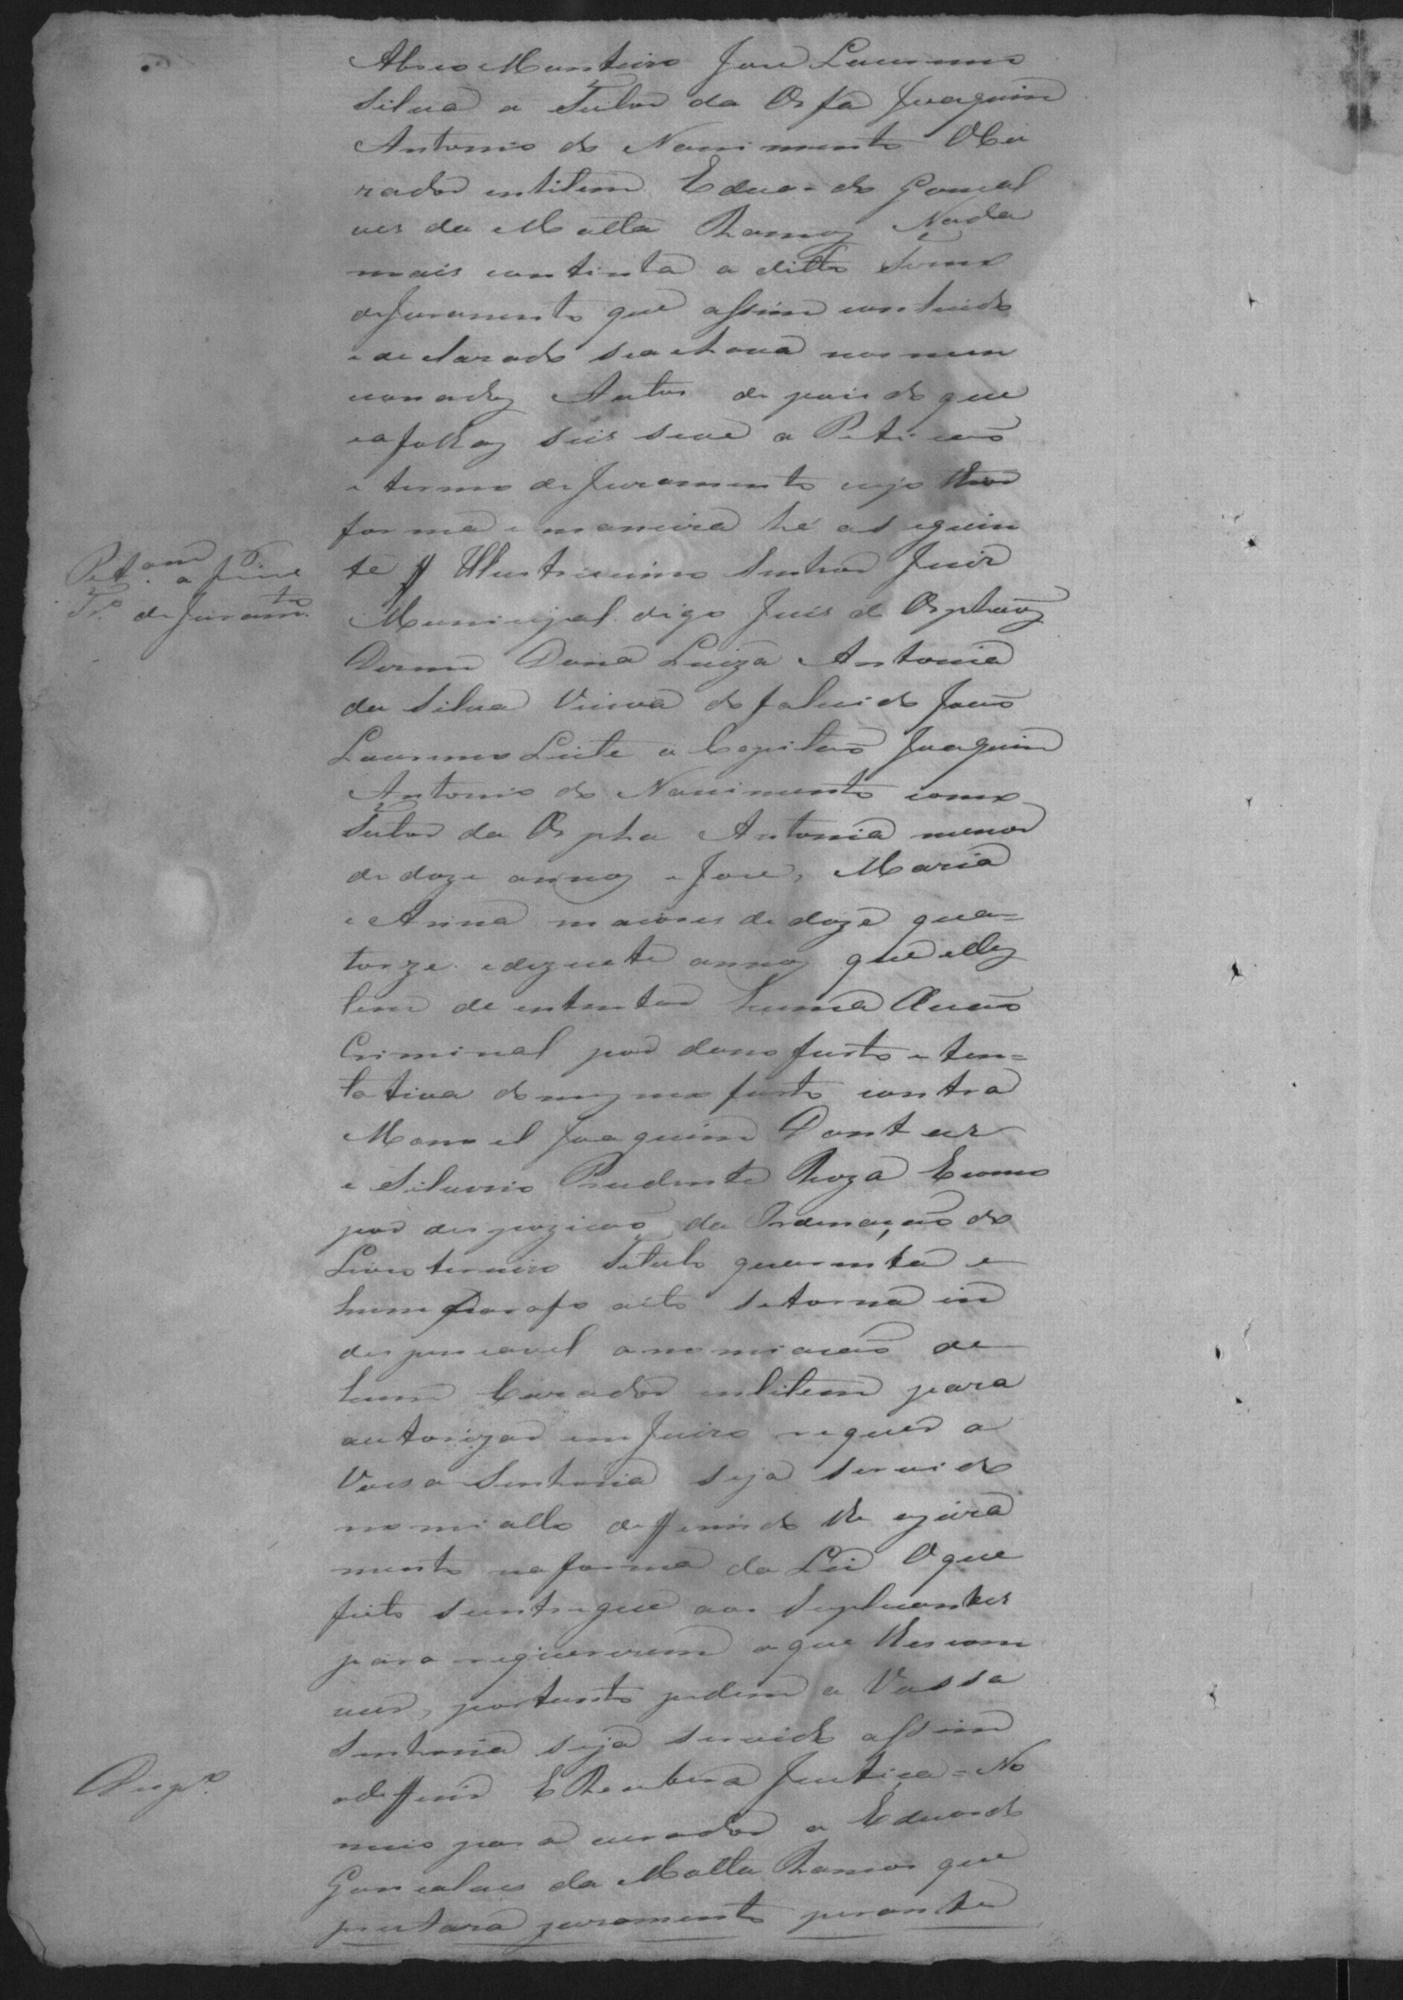 Abreo Monteiro Jose Lourenço
Silva o Tutor da Orfã Joaquim
Antonio do Nascimento O Cu
rador inlitem Eduardo Gonçal
ves da Motta Ramos Nada
mais continha o ditto Termo
deJuramento que assim contiudo
e declarado seachava nosmen
cionados Autos de pois do que
eafolhas seis seve a Peticaõ
e termo deJuramento cujo theor
forma e maneira hé aseguin
te // Illustrissimo Senhor Juis
Municipal digo Juis de Orphaõs
Dizem Dona Luiza Antonia
da Silva Viuva do falecido Joaõ
Lourenço Leite o Capitaõ Joaquim
Antonio do Nascimento como
Tutor da Orpha Antonia menor
de doze annos e Jose, Maria
e Anna maiores de doze qua=
torze edezecete annos que elles
tem de intentar huma Accaõ
Criminal por dano furto e ten=
tativa domesmo furto contra
Manoel Joaquim
e Silverio Prudente Roza E como
por desposicaõ da Ordenaçaõ do
Livro terceiro Titulo quarenta e
hum Parafo oito setorna in
despencavel anomiacaõ de
hum Curador inlitem para
autorizar em Juizo requer a
Vossa Senhoria seja servido
nomiallo defferindo lhe ojura
mento naforma da Lei O que
feito seentregue aos Suplicantes
para requererem oque lhes com
vier, portanto pedem a Vossa
Senhoria seja servido assim
odefferir E Recebera Justiça = No
meio para curador a Eduardo
Goncalves da Motta Ramos que
prestara juramento perante
Pet.am a f
Tr.º de Juram.to
Desp.º